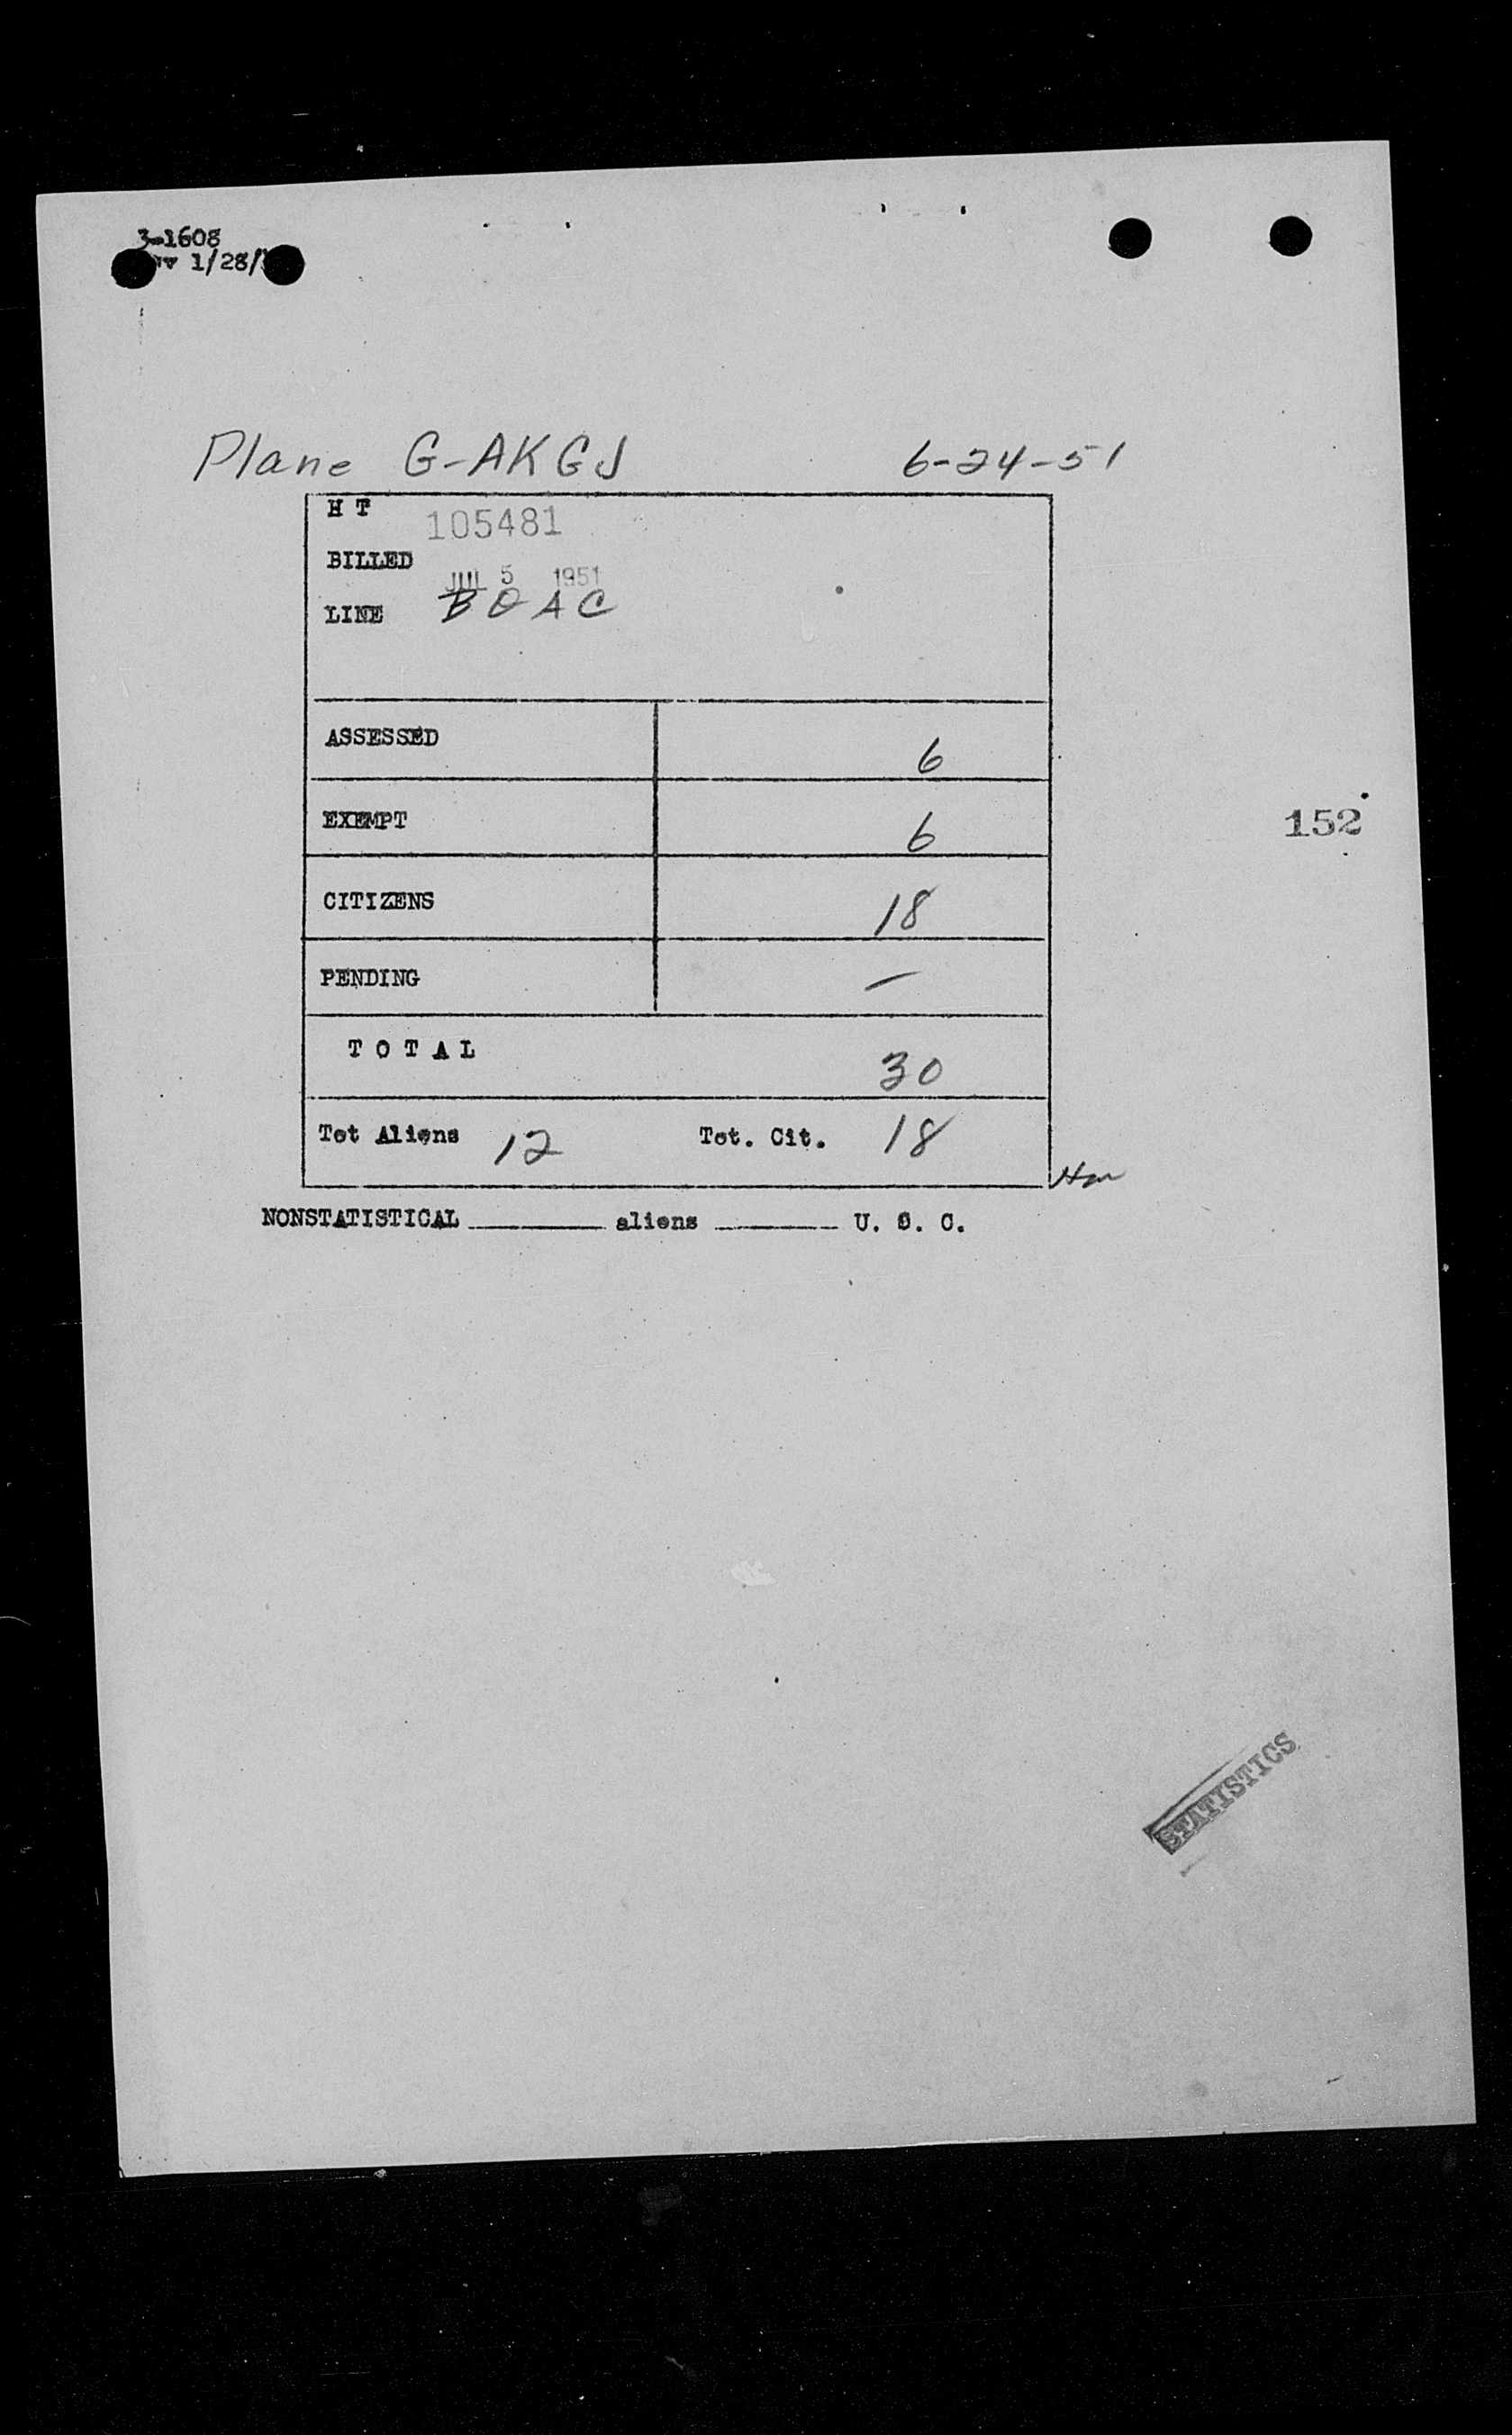 3-1608
1/28/
Plane G-AKGJ 6-24-51
H T 105481
BILLED
JUL 5 1951
LINE BOAC
ASSESSED 6
EXEMPT 6
152
CITIZENS 18
PENDING —
T O T A L 30
Tot Aliens 12 Tot. Cit. 18
NONSTATISTICAL ________ aliens ________ U. S. C.
STATISTICS